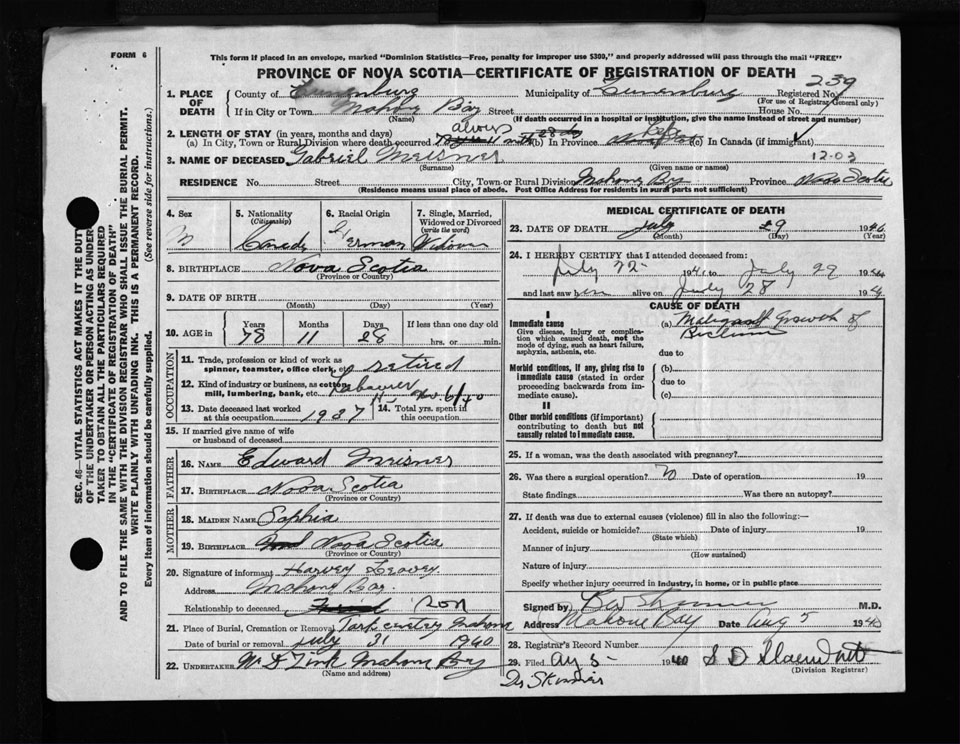 FORM 6
This form if placed in an envelope, marked "Dominion Statistics—Free, penalty for improper use $300," and properly addressed will pass through the mail "FREE"
PROVINCE OF NOVA SCOTIA—CERTIFICATE OF REGISTRATION OF DEATH
239
1. PLACE OF DEATH
County of Lunenburg Municipality of Lunenburg Registered No.
(For use of Registrar General only)
If in City or Town Mahone Bay Street House No.
(Name) (If death occurred in a hospital or institution, give the name instead of street and number)
2. LENGTH OF STAY (in years, months and days) always
(a) In City, Town or Rural Division where death occurred (b) In Province Life (c) In Canada (if immigrant)
3. NAME OF DECEASED Gabriel Meisner 1203
(Surname) (Given name or names)
RESIDENCE No. Street City, Town or Rural Division Mahone Bay Province Nova Scotia
(Residence means usual place of abode. Post Office Address for residents in rural parts not sufficient)
4. Sex m
5. Nationality (Citizenship) Canada
6. Racial Origin German
7. Single, Married, Widowed or Divorced (write the word) Widower
8. BIRTHPLACE Nova Scotia
(Province or Country)
9. DATE OF BIRTH
(Month) (Day) (Year)
10. AGE in Years 78 Months 11 Days 28 If less than one day old hrs. or min.
OCCUPATION
11. Trade, profession or kind of work as spinner, teamster, office clerk, etc. retired
12. Kind of industry or business, as cotton mill, lumbering, bank, etc. Labourer
13. Date deceased last worked at this occupation 1937
14. Total yrs. spent in this occupation
15. If married give name of wife or husband of deceased
FATHER
16. NAME Edward Meisner
17. BIRTHPLACE Nova Scotia
(Province or Country)
MOTHER
18. MAIDEN NAME Sophia
19. BIRTHPLACE Nova Scotia
(Province or Country)
20. Signature of informant Harvey
Address Mahone Bay
Relationship to deceased Friend
21. Place of Burial, Cremation or Removal Park cemetery Mahone
Date of burial or removal July 31 1940
22. UNDERTAKER Mahone Bay
(Name and address)
MEDICAL CERTIFICATE OF DEATH
23. DATE OF DEATH July 29 1940
(Month) (Day) (Year)
24. I HEREBY CERTIFY that I attended deceased from:
July 22 194 to July 29 19
and last saw him alive on July 28 19
CAUSE OF DEATH
I
Immediate cause
Give disease, injury or complication which caused death, not the mode of dying, such as heart failure, asphyxia, asthenia, etc.
(a) Malignant Growth of Rectum
due to
Morbid conditions, if any, giving rise to immediate cause (stated in order proceeding backwards from immediate cause).
(b)
due to
(c)
II
Other morbid conditions (if important) contributing to death but not causally related to immediate cause.
25. If a woman, was the death associated with pregnancy?
26. Was there a surgical operation? No Date of operation 19
State findings Was there an autopsy?
27. If death was due to external causes (violence) fill in also the following:—
Accident, suicide or homicide? Date of injury 19
(State which)
Manner of injury
(How sustained)
Nature of injury
Specify whether injury occurred in industry, in home, or in public place
Signed by Skinner M.D.
Address Mahone Bay Date Aug 5 1940
28. Registrar's Record Number
29. Filed Aug 5 1940
(Division Registrar)
Dr Skinner
SEC. 46—VITAL STATISTICS ACT MAKES IT THE DUTY
OF THE UNDERTAKER OR PERSON ACTING AS UNDERTAKER TO OBTAIN ALL THE PARTICULARS REQUIRED
IN THE "CERTIFICATE OF REGISTRATION OF DEATH"
AND TO FILE THE SAME WITH THE DIVISION REGISTRAR WHO SHALL ISSUE THE BURIAL PERMIT.
WRITE PLAINLY WITH UNFADING INK. THIS IS A PERMANENT RECORD.
Every item of information should be carefully supplied. (See reverse side for instructions.)